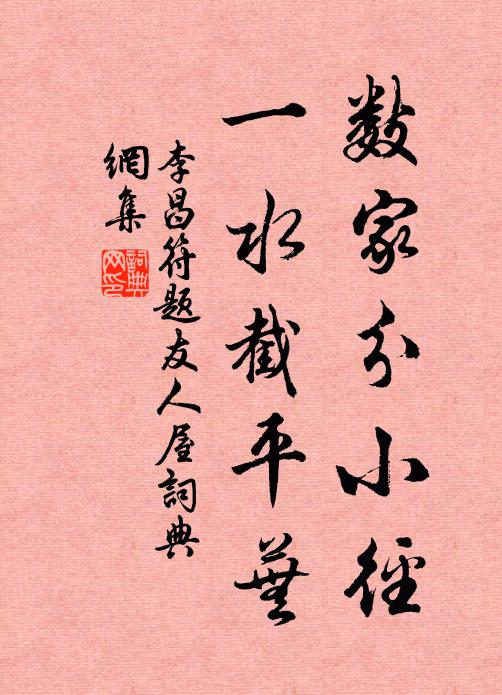 数家分小径
一水截平蕪
李昌符题友人屋詞典
網集
詞典
网印